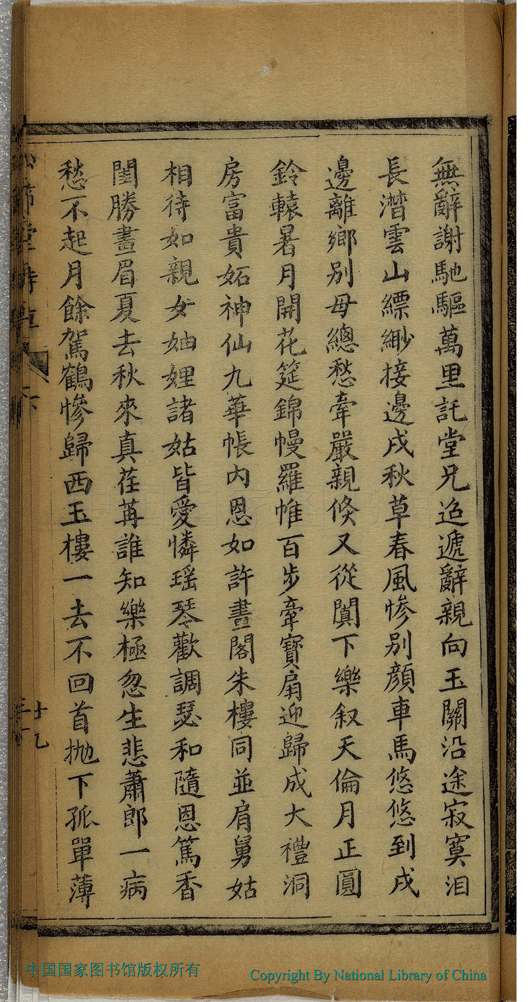 無辭謝馳驅萬里託堂兄迢遞辭親向玉關沿途寂寞泪
長潸雲山縹緲接邊戍秋草春風慘別顔車馬悠悠到戍
邊離鄉別母總愁牽嚴親倐又從闐下樂叙天倫月正圓
鈴轅暑月開花筵錦幔羅帷百步牽寶扇迎歸成大禮洞
房富貴妬神仙九華帳内恩如許畫閣朱樓同並肩舅姑
相待如親女妯娌諸姑皆愛憐瑶琴歡調瑟和隨恩篤香
閨勝畫眉夏去秋來真荏苒誰知樂極忽生悲蕭郎一病
愁不起月餘駕鶴慘歸西玉樓一去不回首抛下孤單薄
廿九
中国国家图书馆版权所有
Copyright By National Library of China